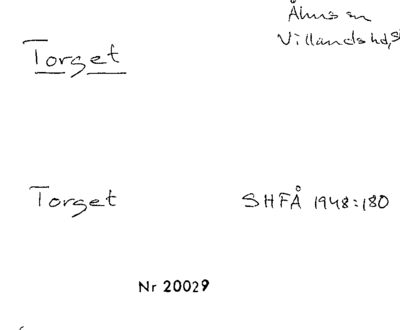 Åhus sn
Torget
Villands hd, S
Torget SHFÅ 1948:180
Nr 20029